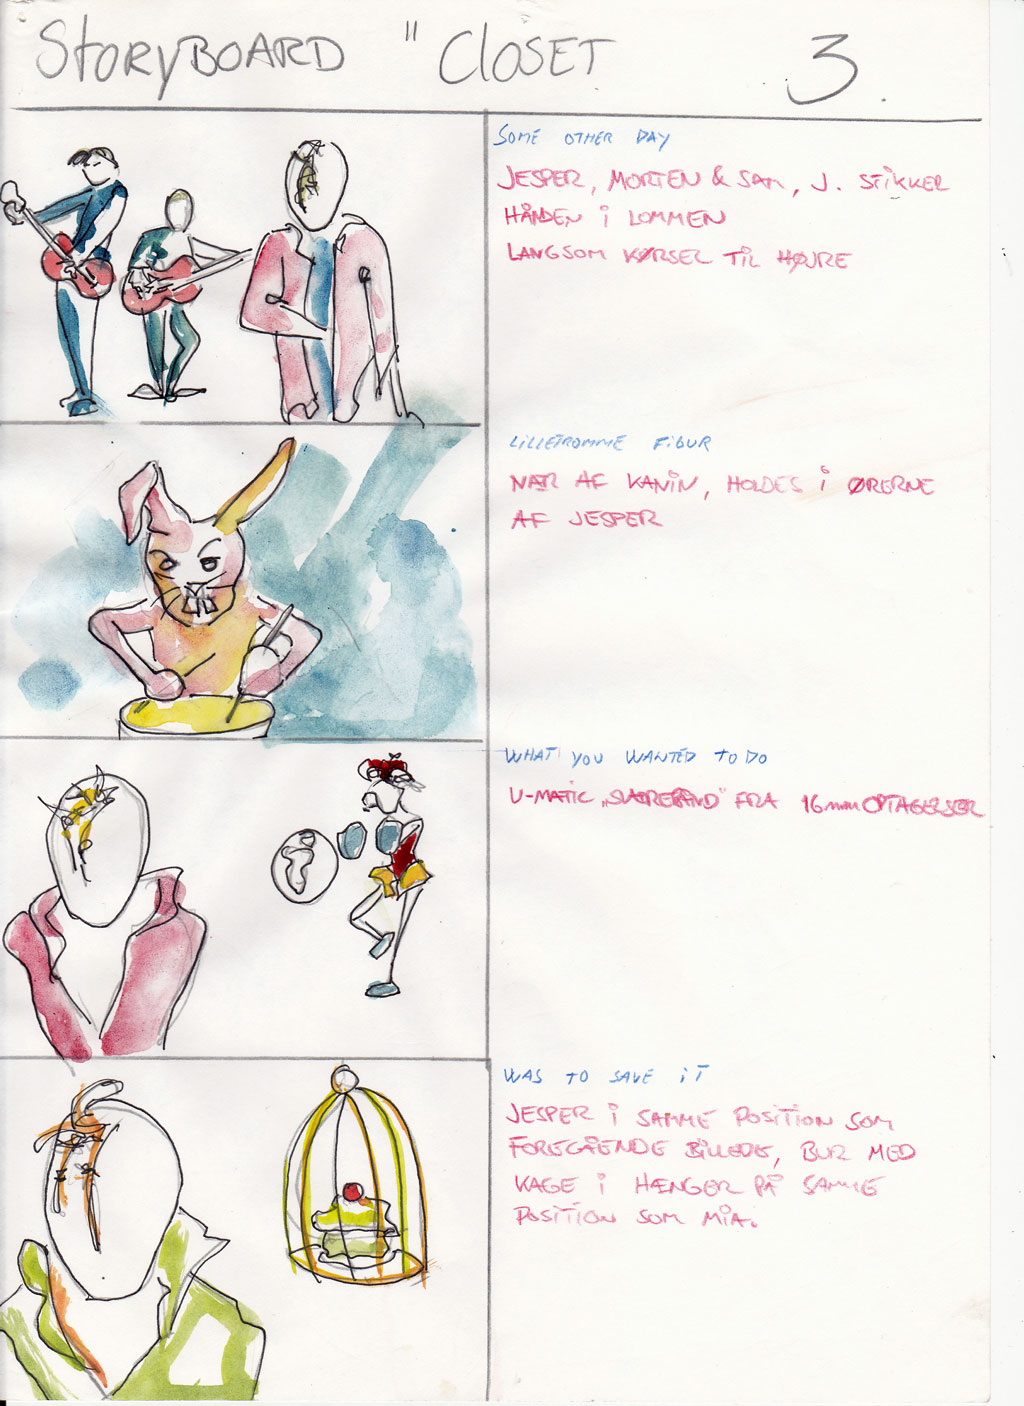 STORYBOARD "CLOSET 3.
SOME OTHER DAY
JESPER, MORTEN & SAM, J. STIKKER
HÅNDEN i LOMMEN
LANGSOM KØRSEL TIL HØJRE
LILLETROMME FIGUR
NÆR AF KANIN, HOLDES i ØRERNE
AF JESPER
WHAT YOU WANTED TO DO
U-MATIC „SVÆREBÅND" FRA 16mm OPTAGELSER
WAS TO SAVE iT
JESPER i SAMME POSITION SOM
FOREGÅENDE BILLEDE, BUR MED
KAGE i HÆNGER PÅ SAMME
POSITION SOM MiA.